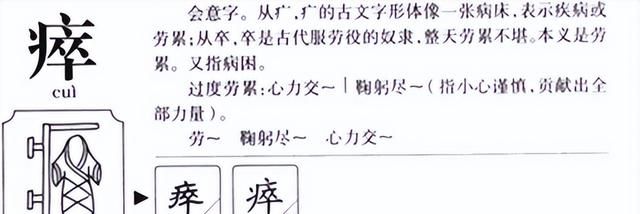 瘁
cuì
会意字。从疒,疒的古文字形体像一张病床,表示疾病或
劳累;从卒,卒是古代服劳役的奴隶,整天劳累不堪。本义是劳
累。又指病困。
过度劳累:心力交～｜鞠躬尽～(指小心谨慎,贡献出全
部力量)。
劳～ 鞠躬尽～ 心力交～
瘁 瘁